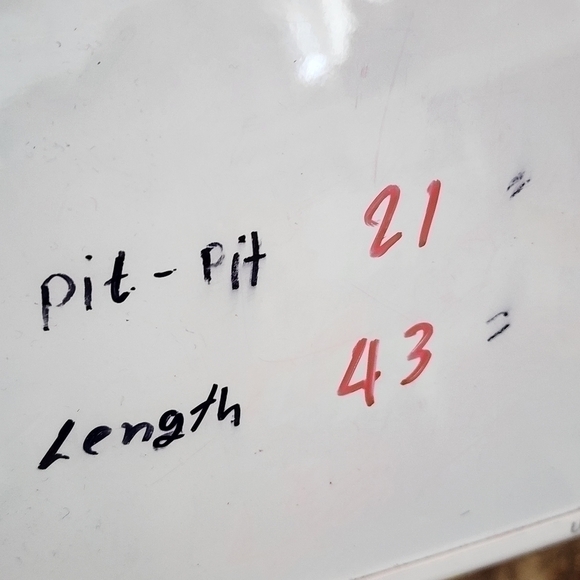 pit - pit 21 "
Length 43 "